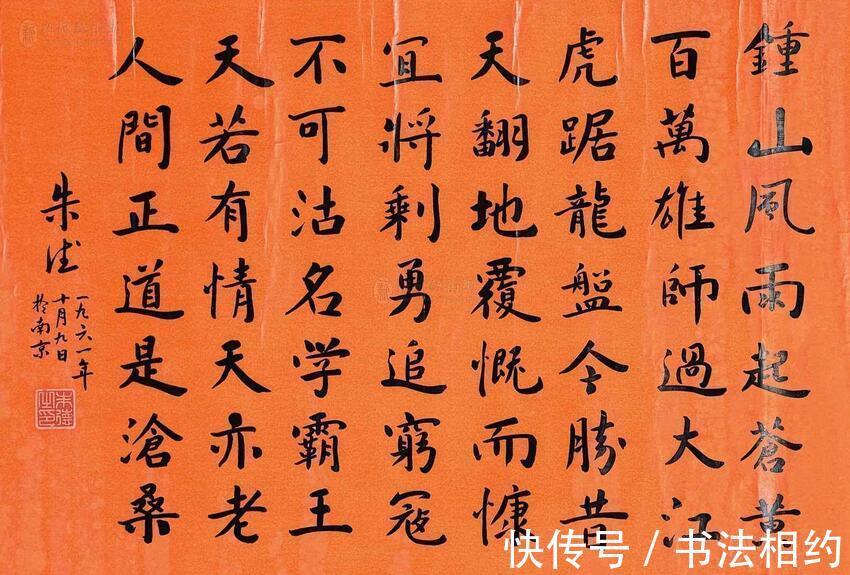 鍾山風雨起蒼黄
百萬雄師過大江
虎踞龍盤今勝昔
天翻地覆慨而慷
宜將剩勇追窮寇
不可沽名学霸王
天若有情天亦老
人間正道是滄桑
朱德
一九六一年
十月九日
於南京
朱德之印
快传号 / 书法相约